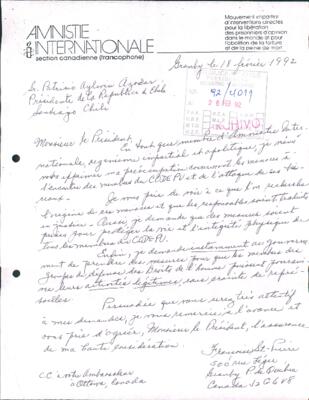 AMNISTIE
INTERNATIONALE
section canadienne (francophone)
Mouvement impartial
d'interventions directes
pour la libération
des prisonniers d'opinion
dans le monde et pour
l'abolition de la torture
et de la peine de mort
Granby le 18 février 1992
Sr. Patricio Aylwin Azocar
Presidente de la Republica de Chile
Santiago Chile
92/4011
28 FEB 92
ARCHIVO
Monsieur le Président,
En tant que membre d'Amnistie Inter-
nationale, organisme impartial et apolitique, je viens
vous exprimer ma préoccupation concernant les menaces à
l'encontre des membres du CODEPU et de l'attaque de ses
Je vous prie de voir à ce que l'on recherche
l'origine de ces menaces et que les responsables soient traduits
en justice. Aussi, je demande que des mesures soient
prises pour protéger la vie et l'intégrité physique de
tous les membres du CODEPU.
Enfin, je demande instamment au gouverne-
ment de prendre des mesures pour que les membres des
groupes de défense des Droits de l'homme puissent poursui-
vre leurs activités légitimes, sans crainte de repré-
sailles.
Persuadée que vous serez très attentif
à mes demandes, je vous remercie à l'avance et
vous prie d'agréer, Monsieur le Président, l'assurance
de ma haute considération.
CC à votre Ambassadeur
à Ottawa, Canada
Granby P. Québec
Canada